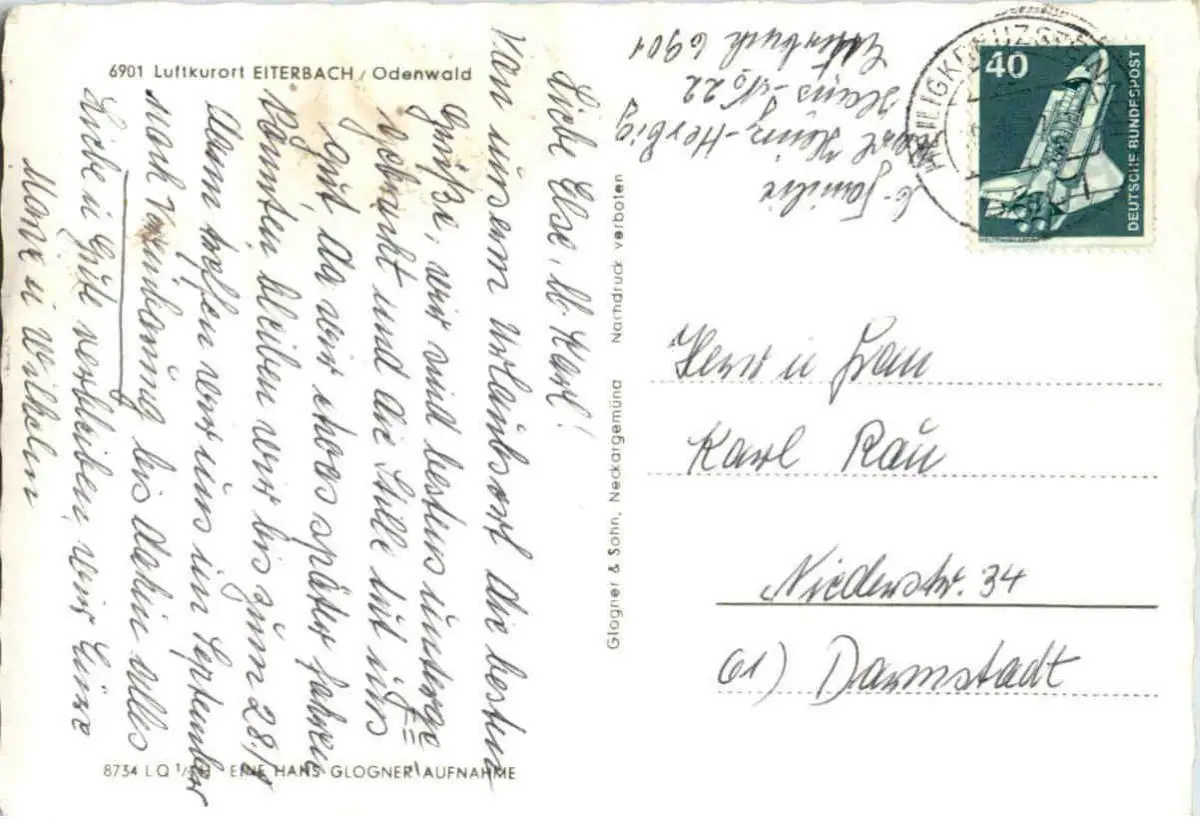 6901 Luftkurort EITERBACH / Odenwald
Liebe Else, lb. Karl!
Von unserm Urlaubsort die besten
Grüße, wir sind bestens unterge=
gebracht und die Stille tut uns
gut, da wir etwas später fahren
konnten bleiben wir bis zum 28./
dann treffen wir uns im September
nach bis dahin alles
Liebe u Gute verbleiben, wir Eure
Marie u Wilhelm
b. Familie
Karl Heinz-Herbig
Haus-No 22
Eiterbach 6901
Glogner & Sohn, Neckargemünd Nachdruck verboten
40
DEUTSCHE BUNDESPOST
Herr u Frau
Karl Rau
Niederstr. 34
61) Darmstadt
8734 LQ EINE HANS GLOGNER AUFNAHME